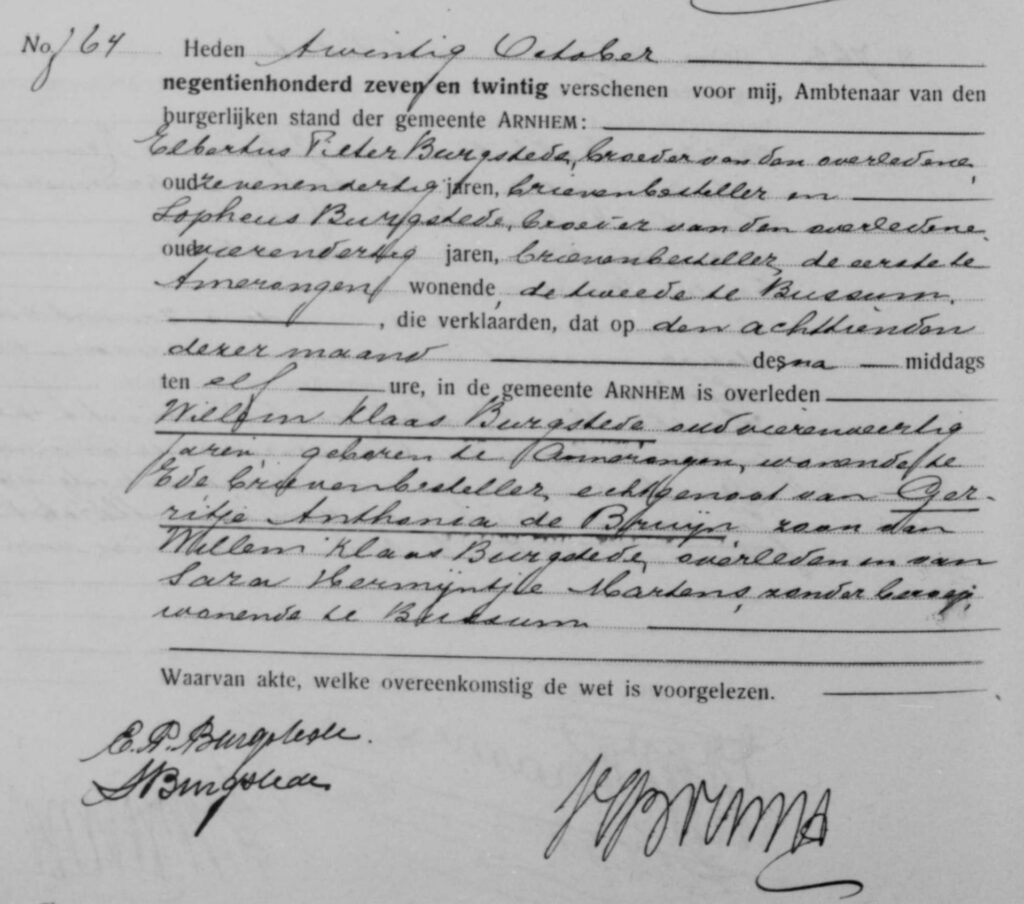 No 764 Heden twintig October
negentienhonderd zeven en twintig verschenen voor mij, Ambtenaar van den
burgerlijken stand der gemeente ARNHEM:
Elbertus Pieter Burgstede, broeder van den overledene,
oud zevenendertig jaren, brievenbesteller en
Sopheus Burgstede, broeder van den overledene,
oud vierendertig jaren, brievenbesteller, de eerste te
Amerongen wonende, de tweede te Bussum.
, die verklaarden, dat op den achttienden
dezer maand des na middags
ten elf ure, in de gemeente ARNHEM is overleden
Willem Klaas Burgstede oud vierenveertig
jaren geboren te Amerongen, wonende te
Ede brievenbesteller, echtgenoot van Ger-
ritje Anthonia de Bruijn zoon van
Willem Klaas Burgstede, overleden en van
Sara Hermijntje Martens, zonder beroep,
wonende te Bussum
Waarvan akte, welke overeenkomstig de wet is voorgelezen.
E. P. Burgstede.
S Burgstede